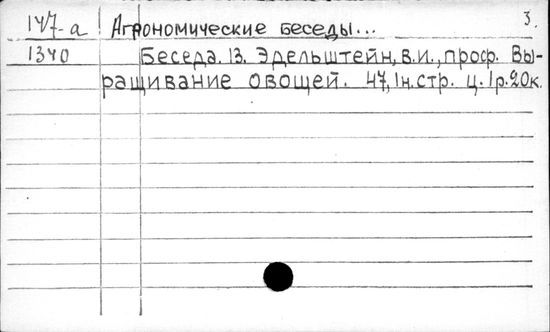 147-а Агрономические беседы... 3.
1340 Беседа. 13. Эдельштейн, В.И., проф. Вы-
ращивание овощей. 47, 1н.стр. ц. 1р.20к.